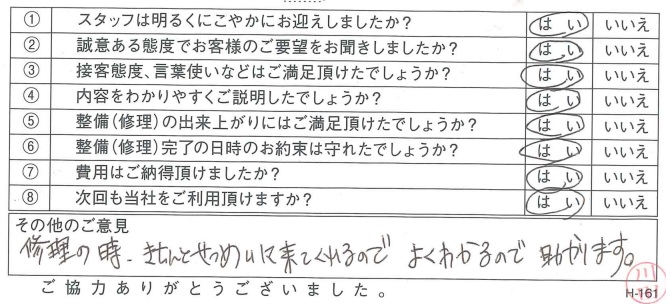 ① スタッフは明るくにこやかにお迎えしましたか? はい いいえ
② 誠意ある態度でお客様のご要望をお聞きしましたか? はい いいえ
③ 接客態度、言葉使いなどはご満足頂けたでしょうか? はい いいえ
④ 内容をわかりやすくご説明したでしょうか? はい いいえ
⑤ 整備(修理)の出来上がりにはご満足頂けたでしょうか? はい いいえ
⑥ 整備(修理)完了の日時のお約束は守れたでしょうか? はい いいえ
⑦ 費用はご納得頂けましたか? はい いいえ
⑧ 次回も当社をご利用頂けますか? はい いいえ
その他のご意見
修理の時、きちんとせつめいに来てくれるので よくわかるので 助かります。
ご協力ありがとうございました。
H-161